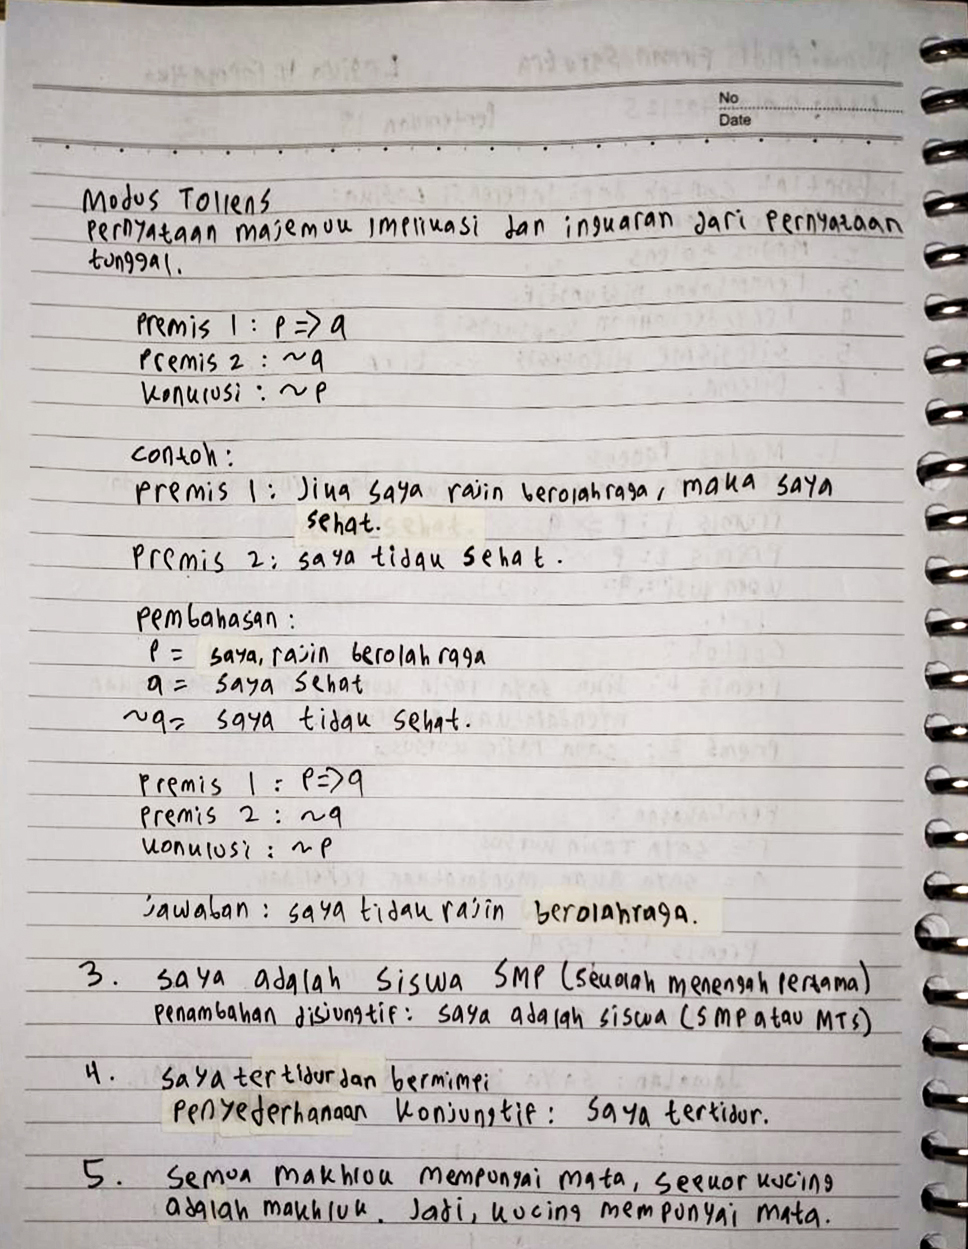 No
Date
Modus Tollens
Pernyataan majemuk implikasi dan ingkaran dari Pernyataan
tunggal.
Premis 1 : P => q
Premis 2 : ~q
Konklusi : ~P
Contoh :
Premis 1 : Jika saya rajin berolahraga, maka saya
sehat.
Premis 2 : saya tidak sehat.
Pembahasan :
P = saya, rajin berolah raga
q = saya sehat
~q = saya tidak sehat.
Premis 1 : P=>q
Premis 2 : ~q
Konklusi : ~P
Jawaban : saya tidak rajin berolahraga.
3. saya adalah siswa SMP (sekolah menengah pertama)
penambahan disjungtif : saya adalah siswa (SMP atau MTS)
4. saya tertidur dan bermimpi
Penyederhanaan Konjungtif : saya tertidur.
5. Semua makhluk mempunyai mata, seekor kucing
adalah makhluk. Jadi, kucing mempunyai mata.